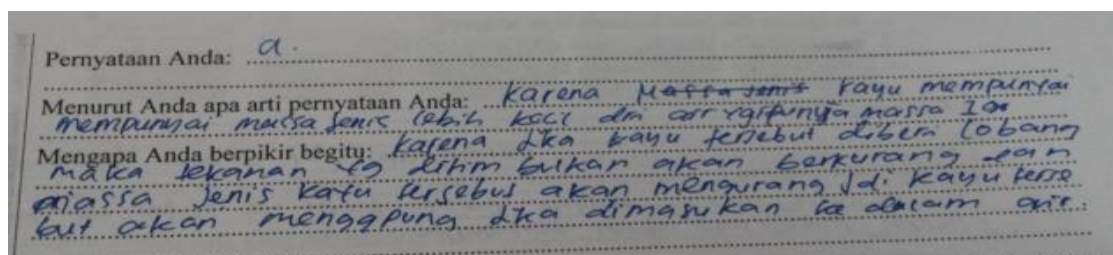 Pernyataan Anda: a.
Menurut Anda apa arti pernyataan Anda: Karena Massa jenis kayu mempunyai
mempunyai massa jenis lebih kecil dri air massa
Mengapa Anda berpikir begitu: Karena jika kayu tersebut diberi lobang
maka tekanan yg ditimbulkan akan berkurang dan
massa jenis kayu tersebut akan mengurang jdi kayu terse
but akan menggpung jika dimasukan ke dalam air.